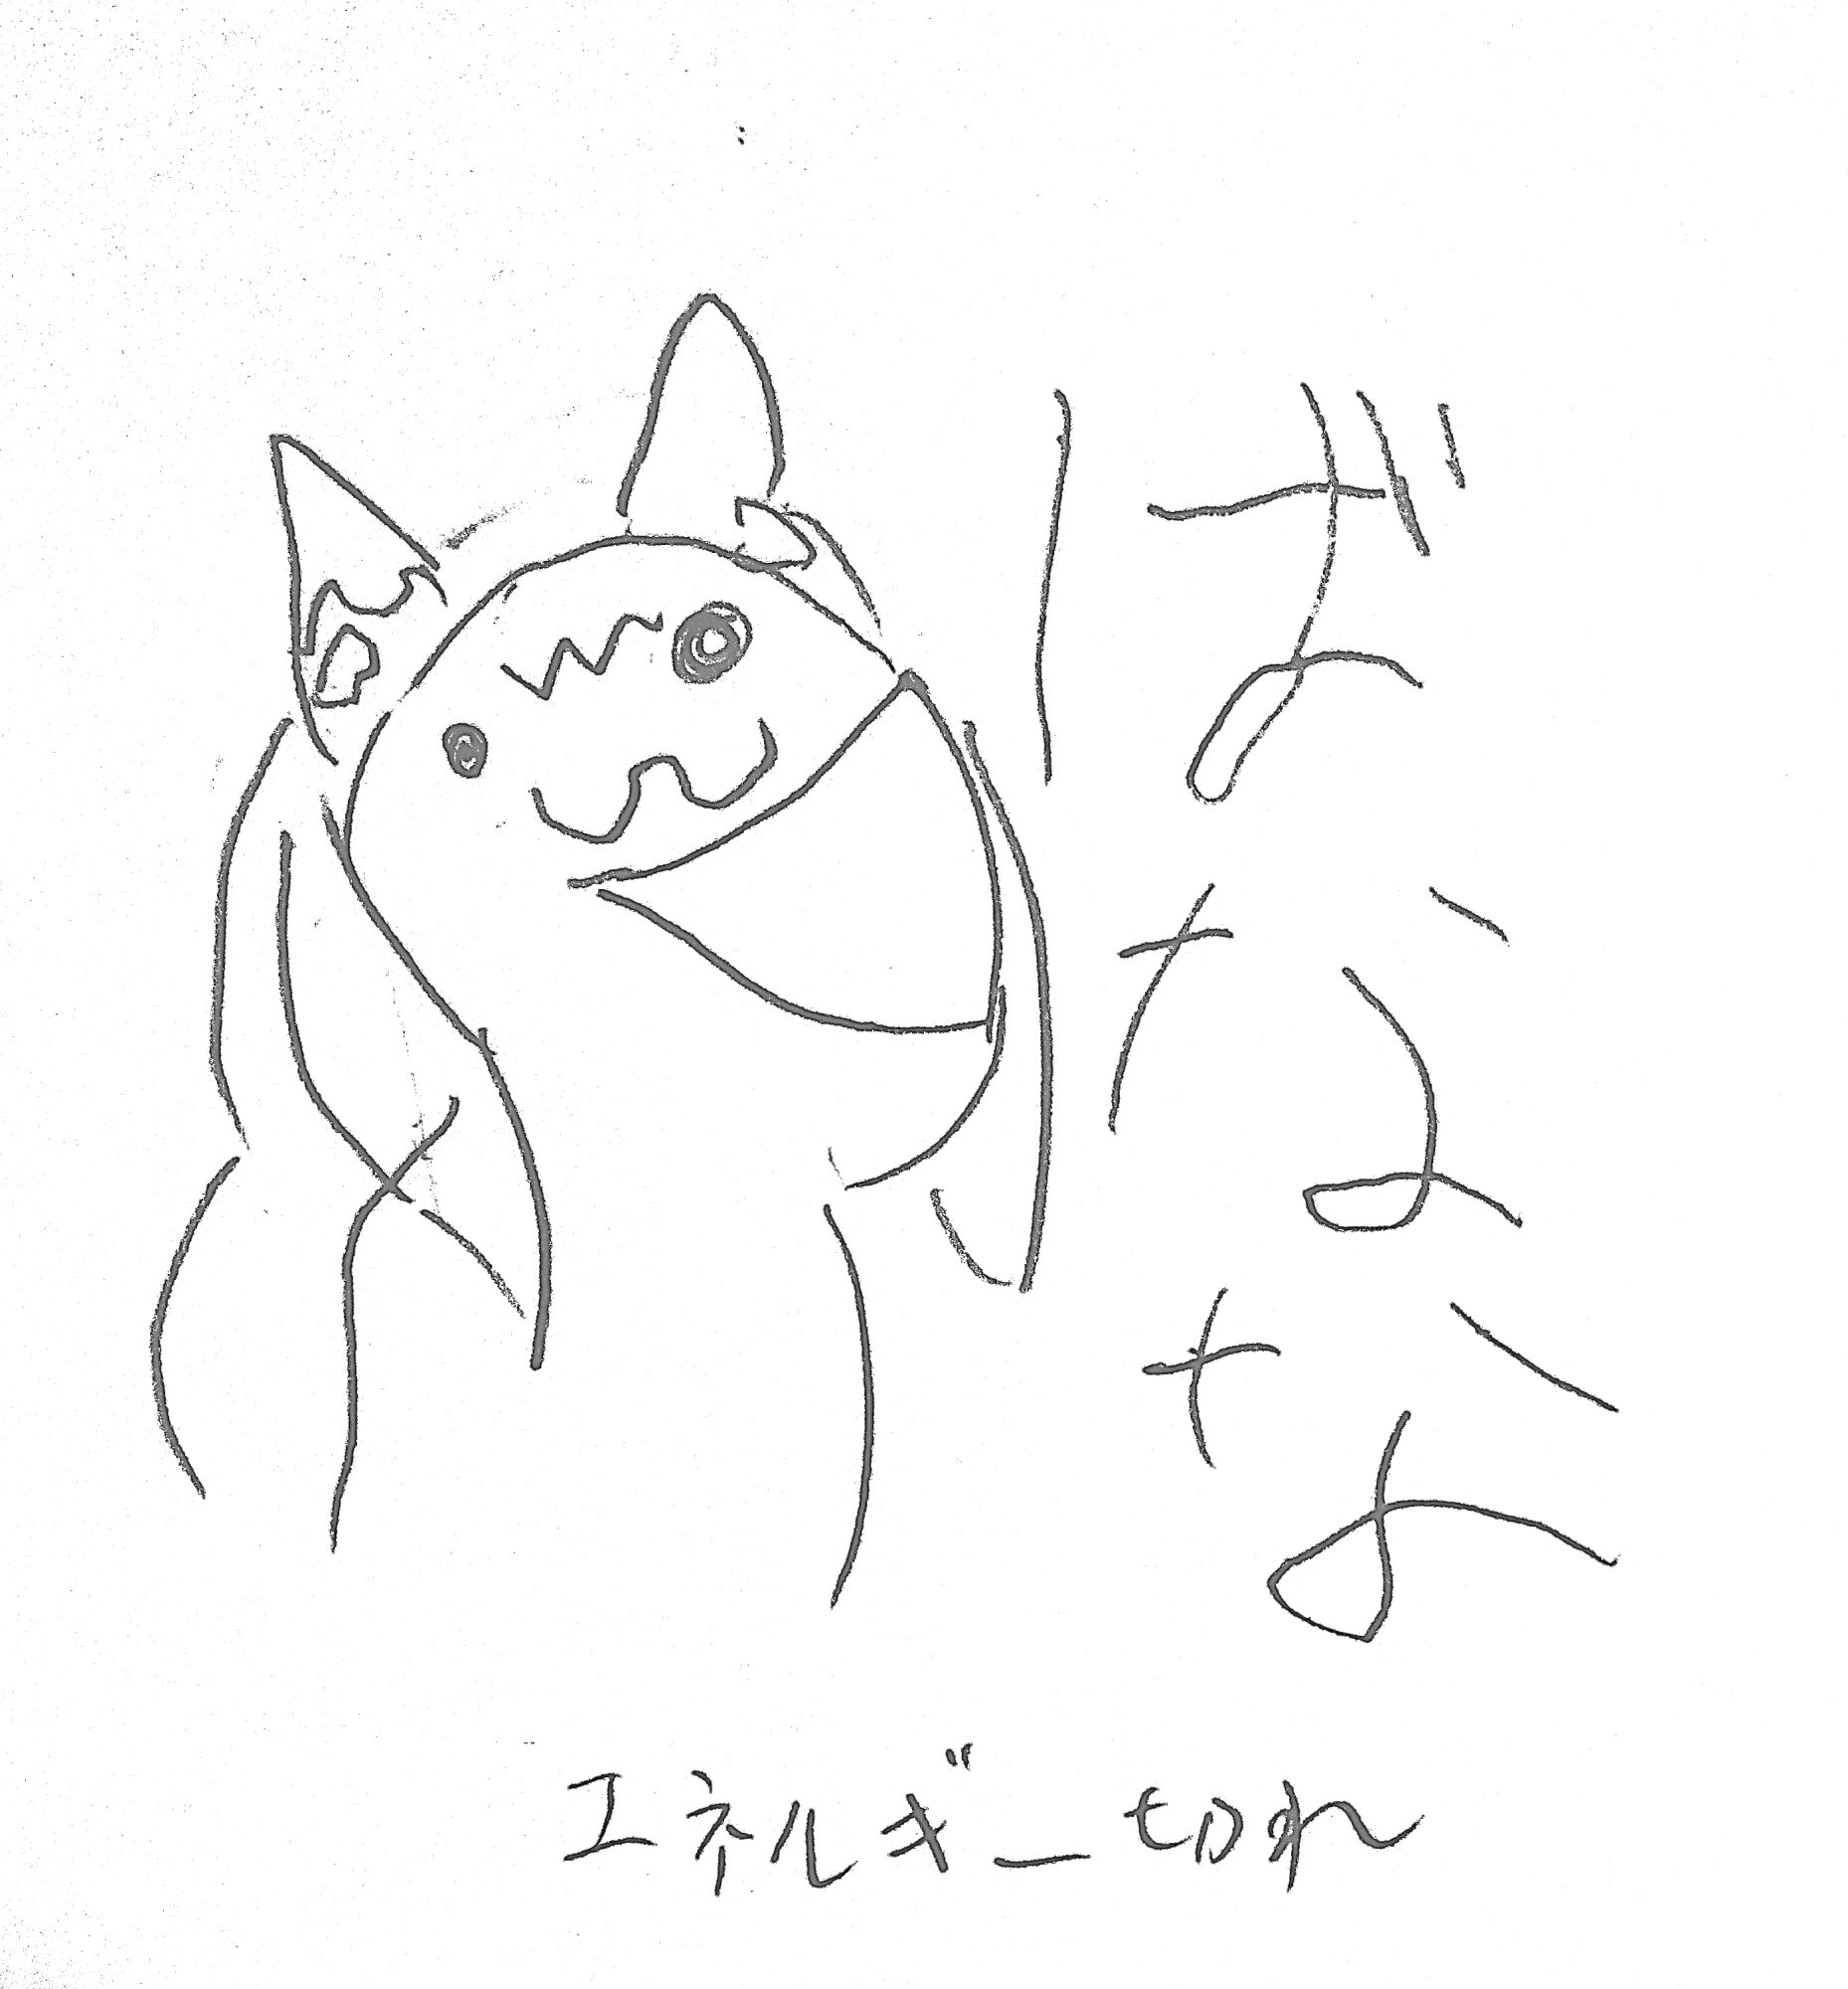 ばなな
エネルギー切れ